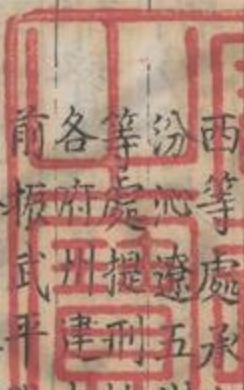 西等處承
汾沁遼五
等處提刑
各府州津
前振武平